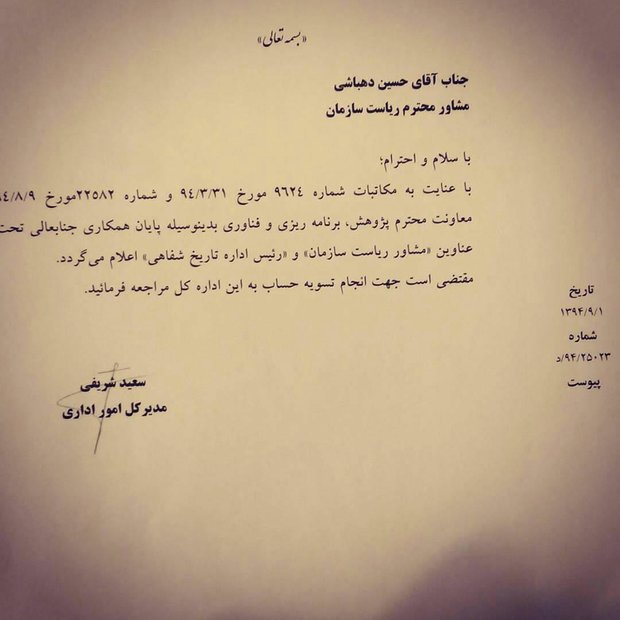 «بسمه تعالی»
جناب آقای حسین دهباشی
مشاور محترم ریاست سازمان
با سلام و احترام؛
با عنایت به مکاتبات شماره ۹۶۲۴ مورخ ۹۴/۳/۳۱ و شماره ۲۲۵۸۲مورخ ۹۴/۸/۹
معاونت محترم پژوهش، برنامه ریزی و فناوری بدینوسیله پایان همکاری جنابعالی تحت
عناوین «مشاور ریاست سازمان» و «رئیس اداره تاریخ شفاهی» اعلام می‌گردد.
مقتضی است جهت انجام تسویه حساب به این اداره کل مراجعه فرمائید.
تاریخ
۱۳۹۴/۹/۱
شماره
۹۴/۲۵۰۲۳/د
پیوست
سعید شریفی
مدیرکل امور اداری